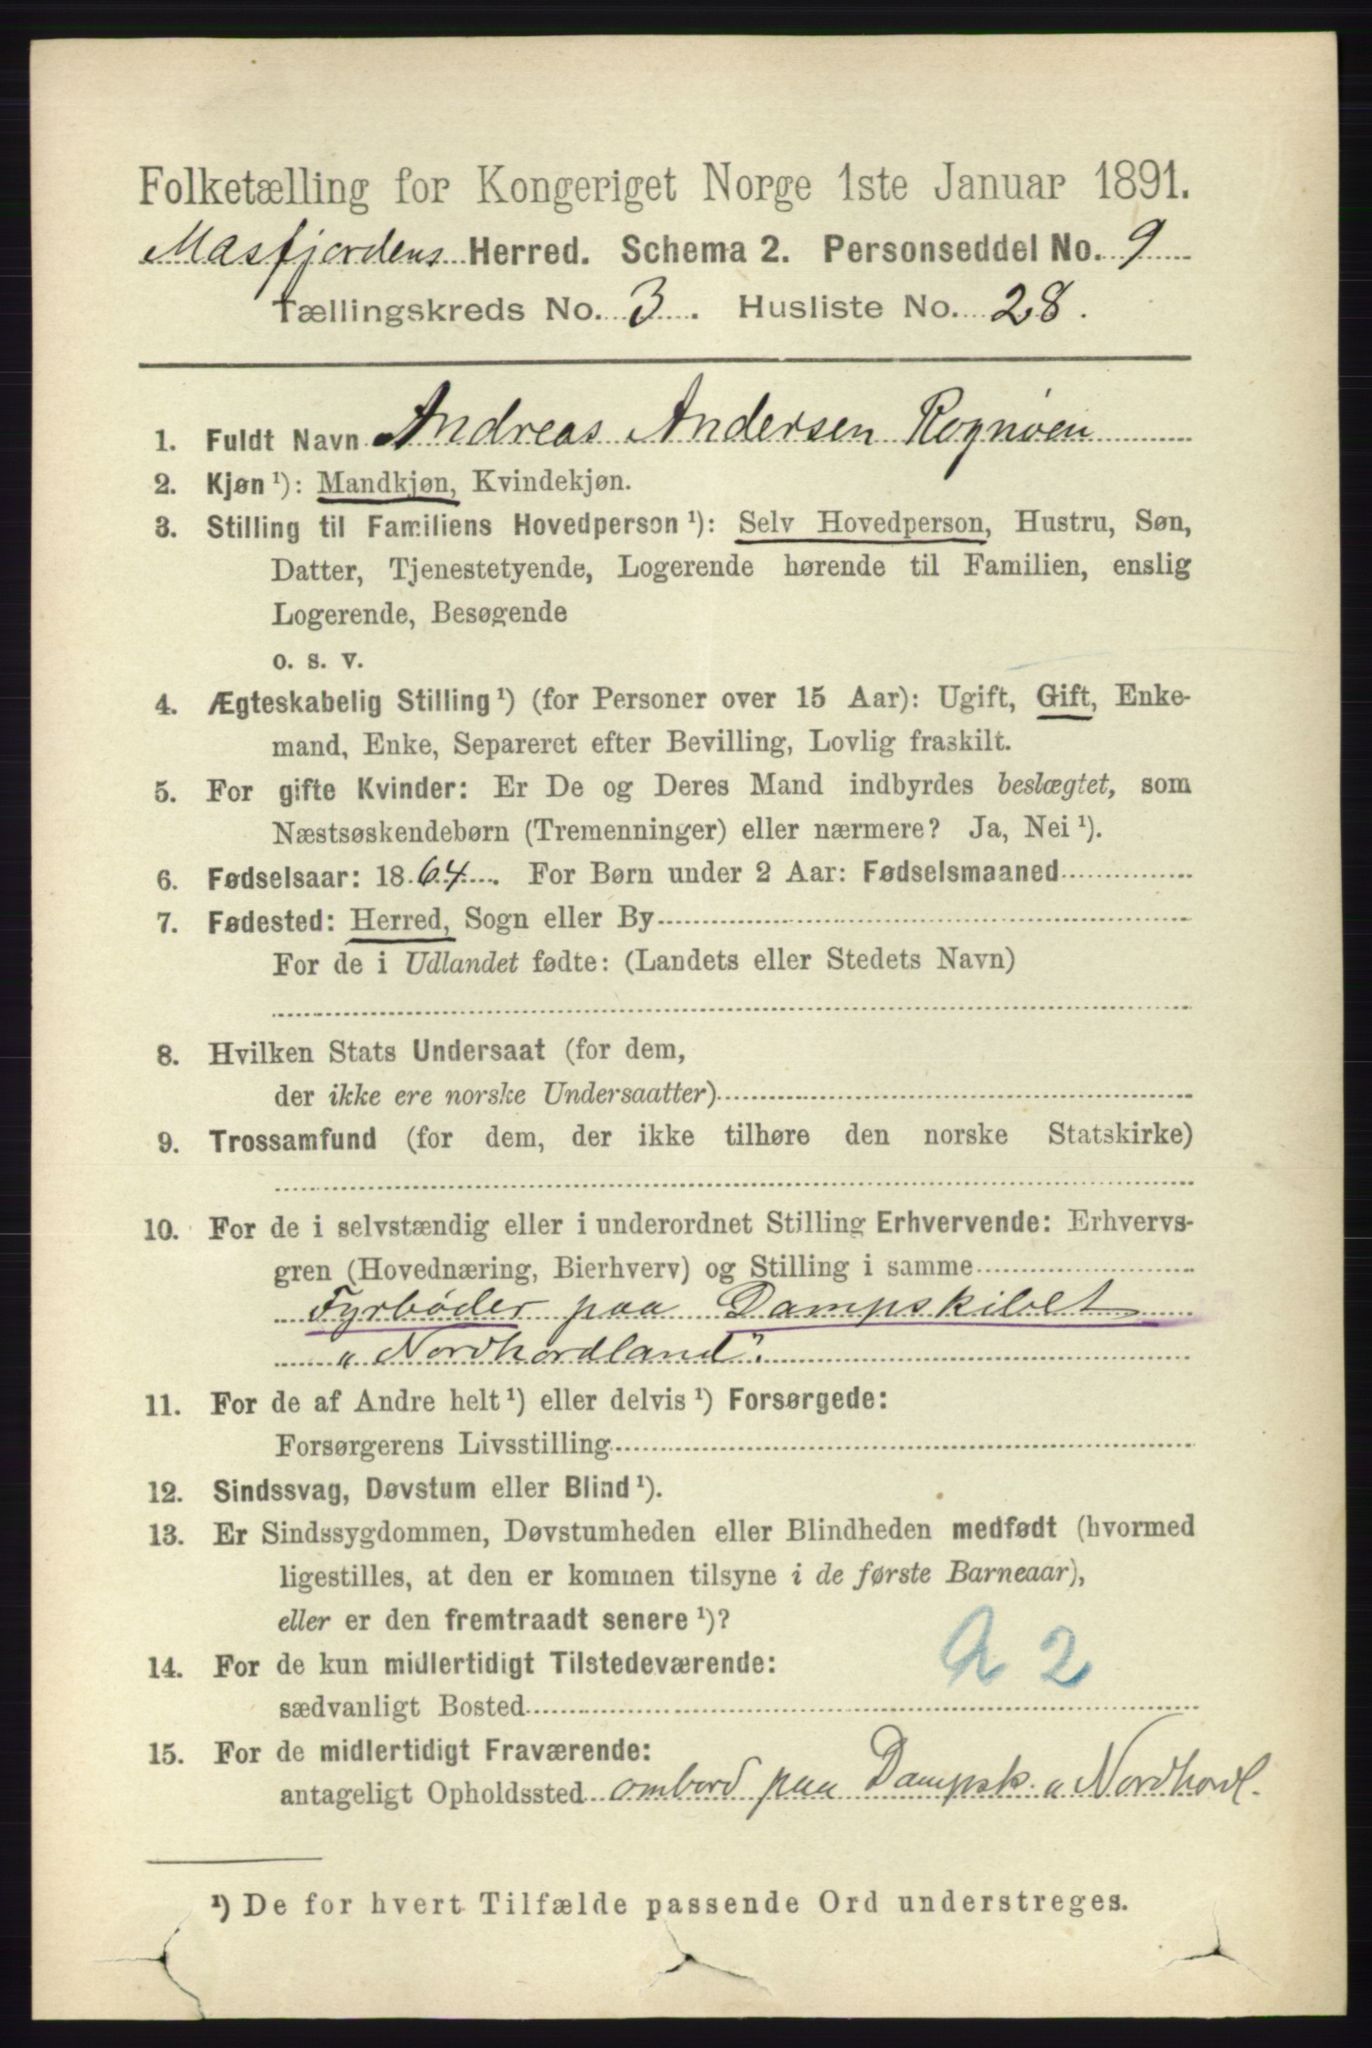 Folketælling for Kongeriget Norge 1ste Januar 1891.
Masfjordens Herred. Schema 2. Personseddel No. 9
Tællingskreds No. 3. Husliste No. 28.
1. Fuldt Navn Andreas Andersen Rognøen
2. Kjøn ¹): Mandkjøn, Kvindekjøn.
3. Stilling til Familiens Hovedperson ¹): Selv Hovedperson, Hustru, Søn,
Datter, Tjenestetyende, Logerende hørende til Familien, enslig
Logerende, Besøgende
o. s. v.
4. Ægteskabelig Stilling ¹) (for Personer over 15 Aar): Ugift, Gift, Enke-
mand, Enke, Separeret efter Bevilling, Lovlig fraskilt.
5. For gifte Kvinder: Er De og Deres Mand indbyrdes beslægtet, som
Næstsøskendebørn (Tremenninger) eller nærmere? Ja, Nei ¹).
6. Fødselsaar: 1864. For Børn under 2 Aar: Fødselsmaaned
7. Fødested: Herred, Sogn eller By
For de i Udlandet fødte: (Landets eller Stedets Navn)
8. Hvilken Stats Undersaat (for dem,
der ikke ere norske Undersaatter)
9. Trossamfund (for dem, der ikke tilhøre den norske Statskirke)
10. For de i selvstændig eller i underordnet Stilling Erhvervende: Erhvervs-
gren (Hovednæring, Bierhverv) og Stilling i samme
Fyrbøder paa Dampskibet
„Nordhordland".
11. For de af Andre helt ¹) eller delvis ¹) Forsørgede:
Forsørgerens Livsstilling
12. Sindssvag, Døvstum eller Blind ¹).
13. Er Sindssygdommen, Døvstumheden eller Blindheden medfødt (hvormed
ligestilles, at den er kommen tilsyne i de første Barneaar),
eller er den fremtraadt senere ¹)?
14. For de kun midlertidigt Tilstedeværende:
sædvanligt Bosted
a 2
15. For de midlertidigt Fraværende:
antageligt Opholdssted ombord paa Dampsk. „Nordhordl.
¹) De for hvert Tilfælde passende Ord understreges.